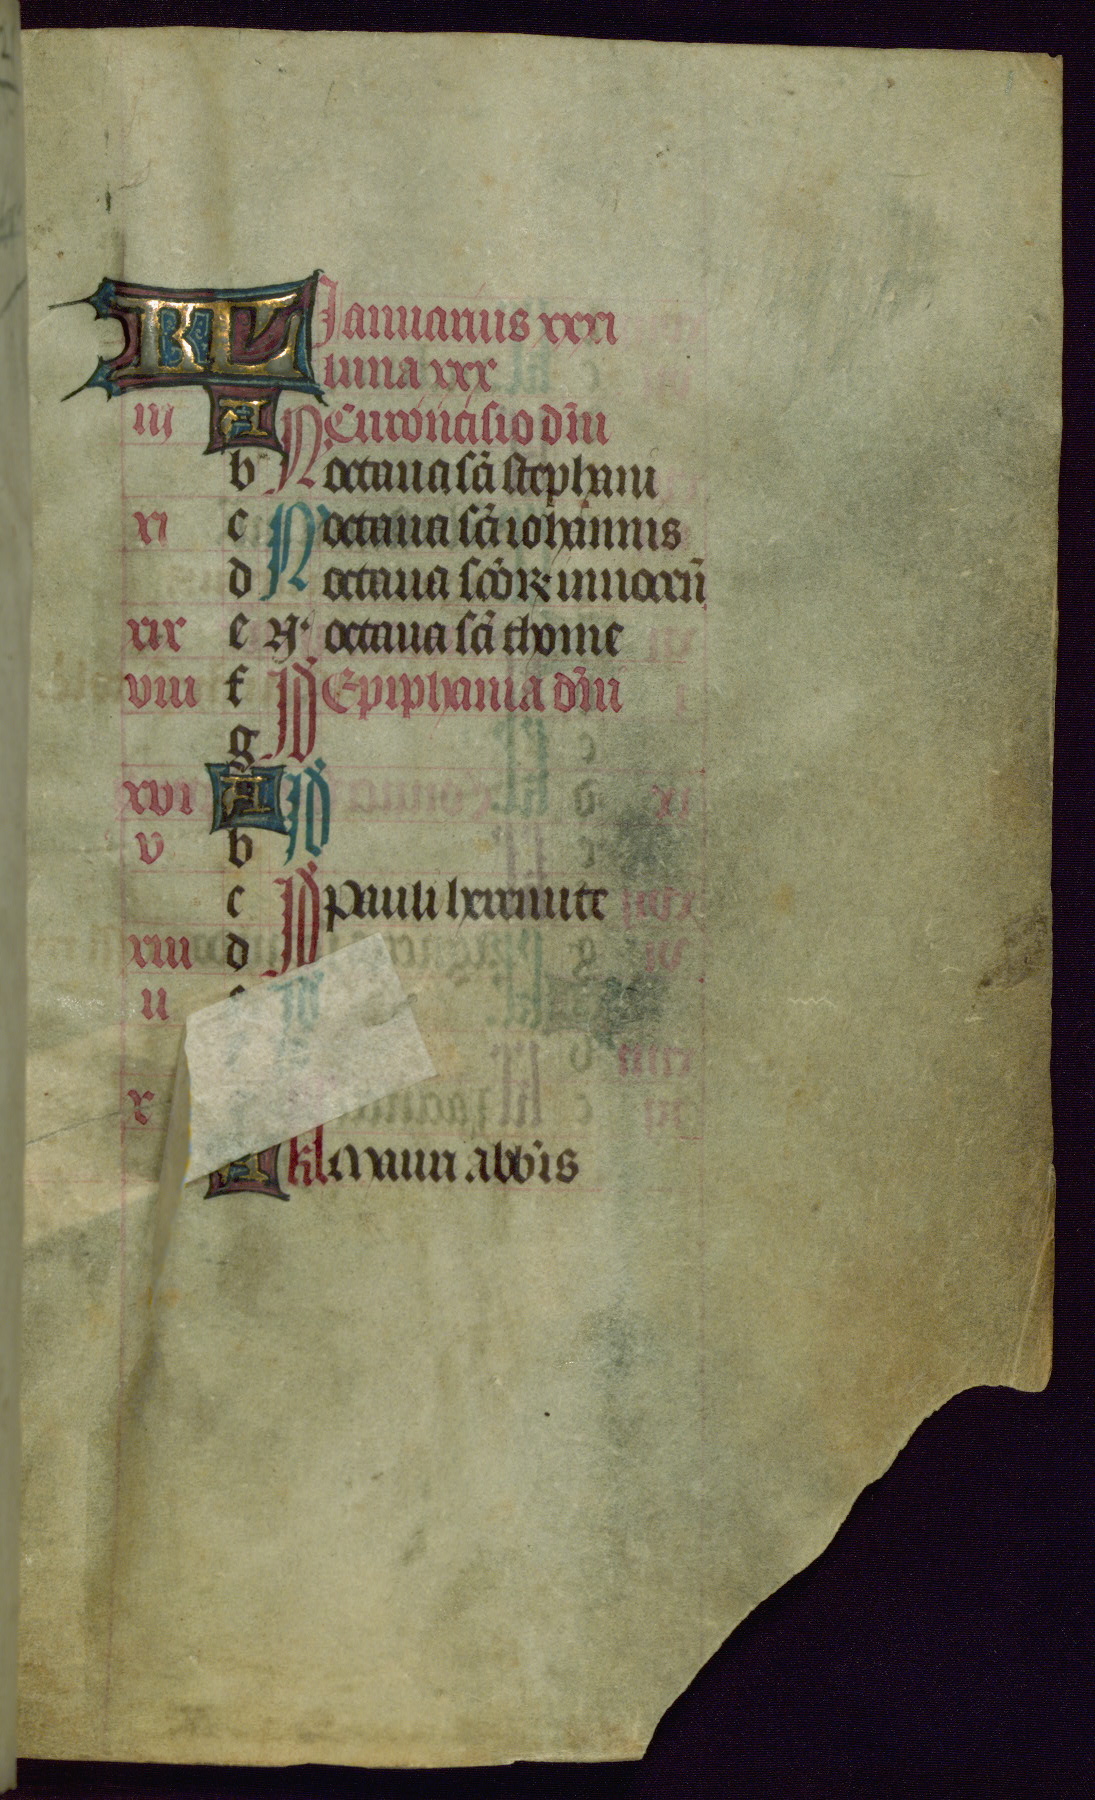 KL Januarius xxxi
luna xxx
iii A N Circu̅cisio dn̅i
b N octaua sc̅i stephani
xi c N octaua sc̅i iohannis
d N octaua sc̅oꝝ innocen̅
xix e N octaua sc̅i thome
viii f Id Epiphania dn̅i
g Id
xvi A Id
v b Id
c Id pauli heremite
xiii d Id
ii
x
A kl Mauri abb̅is